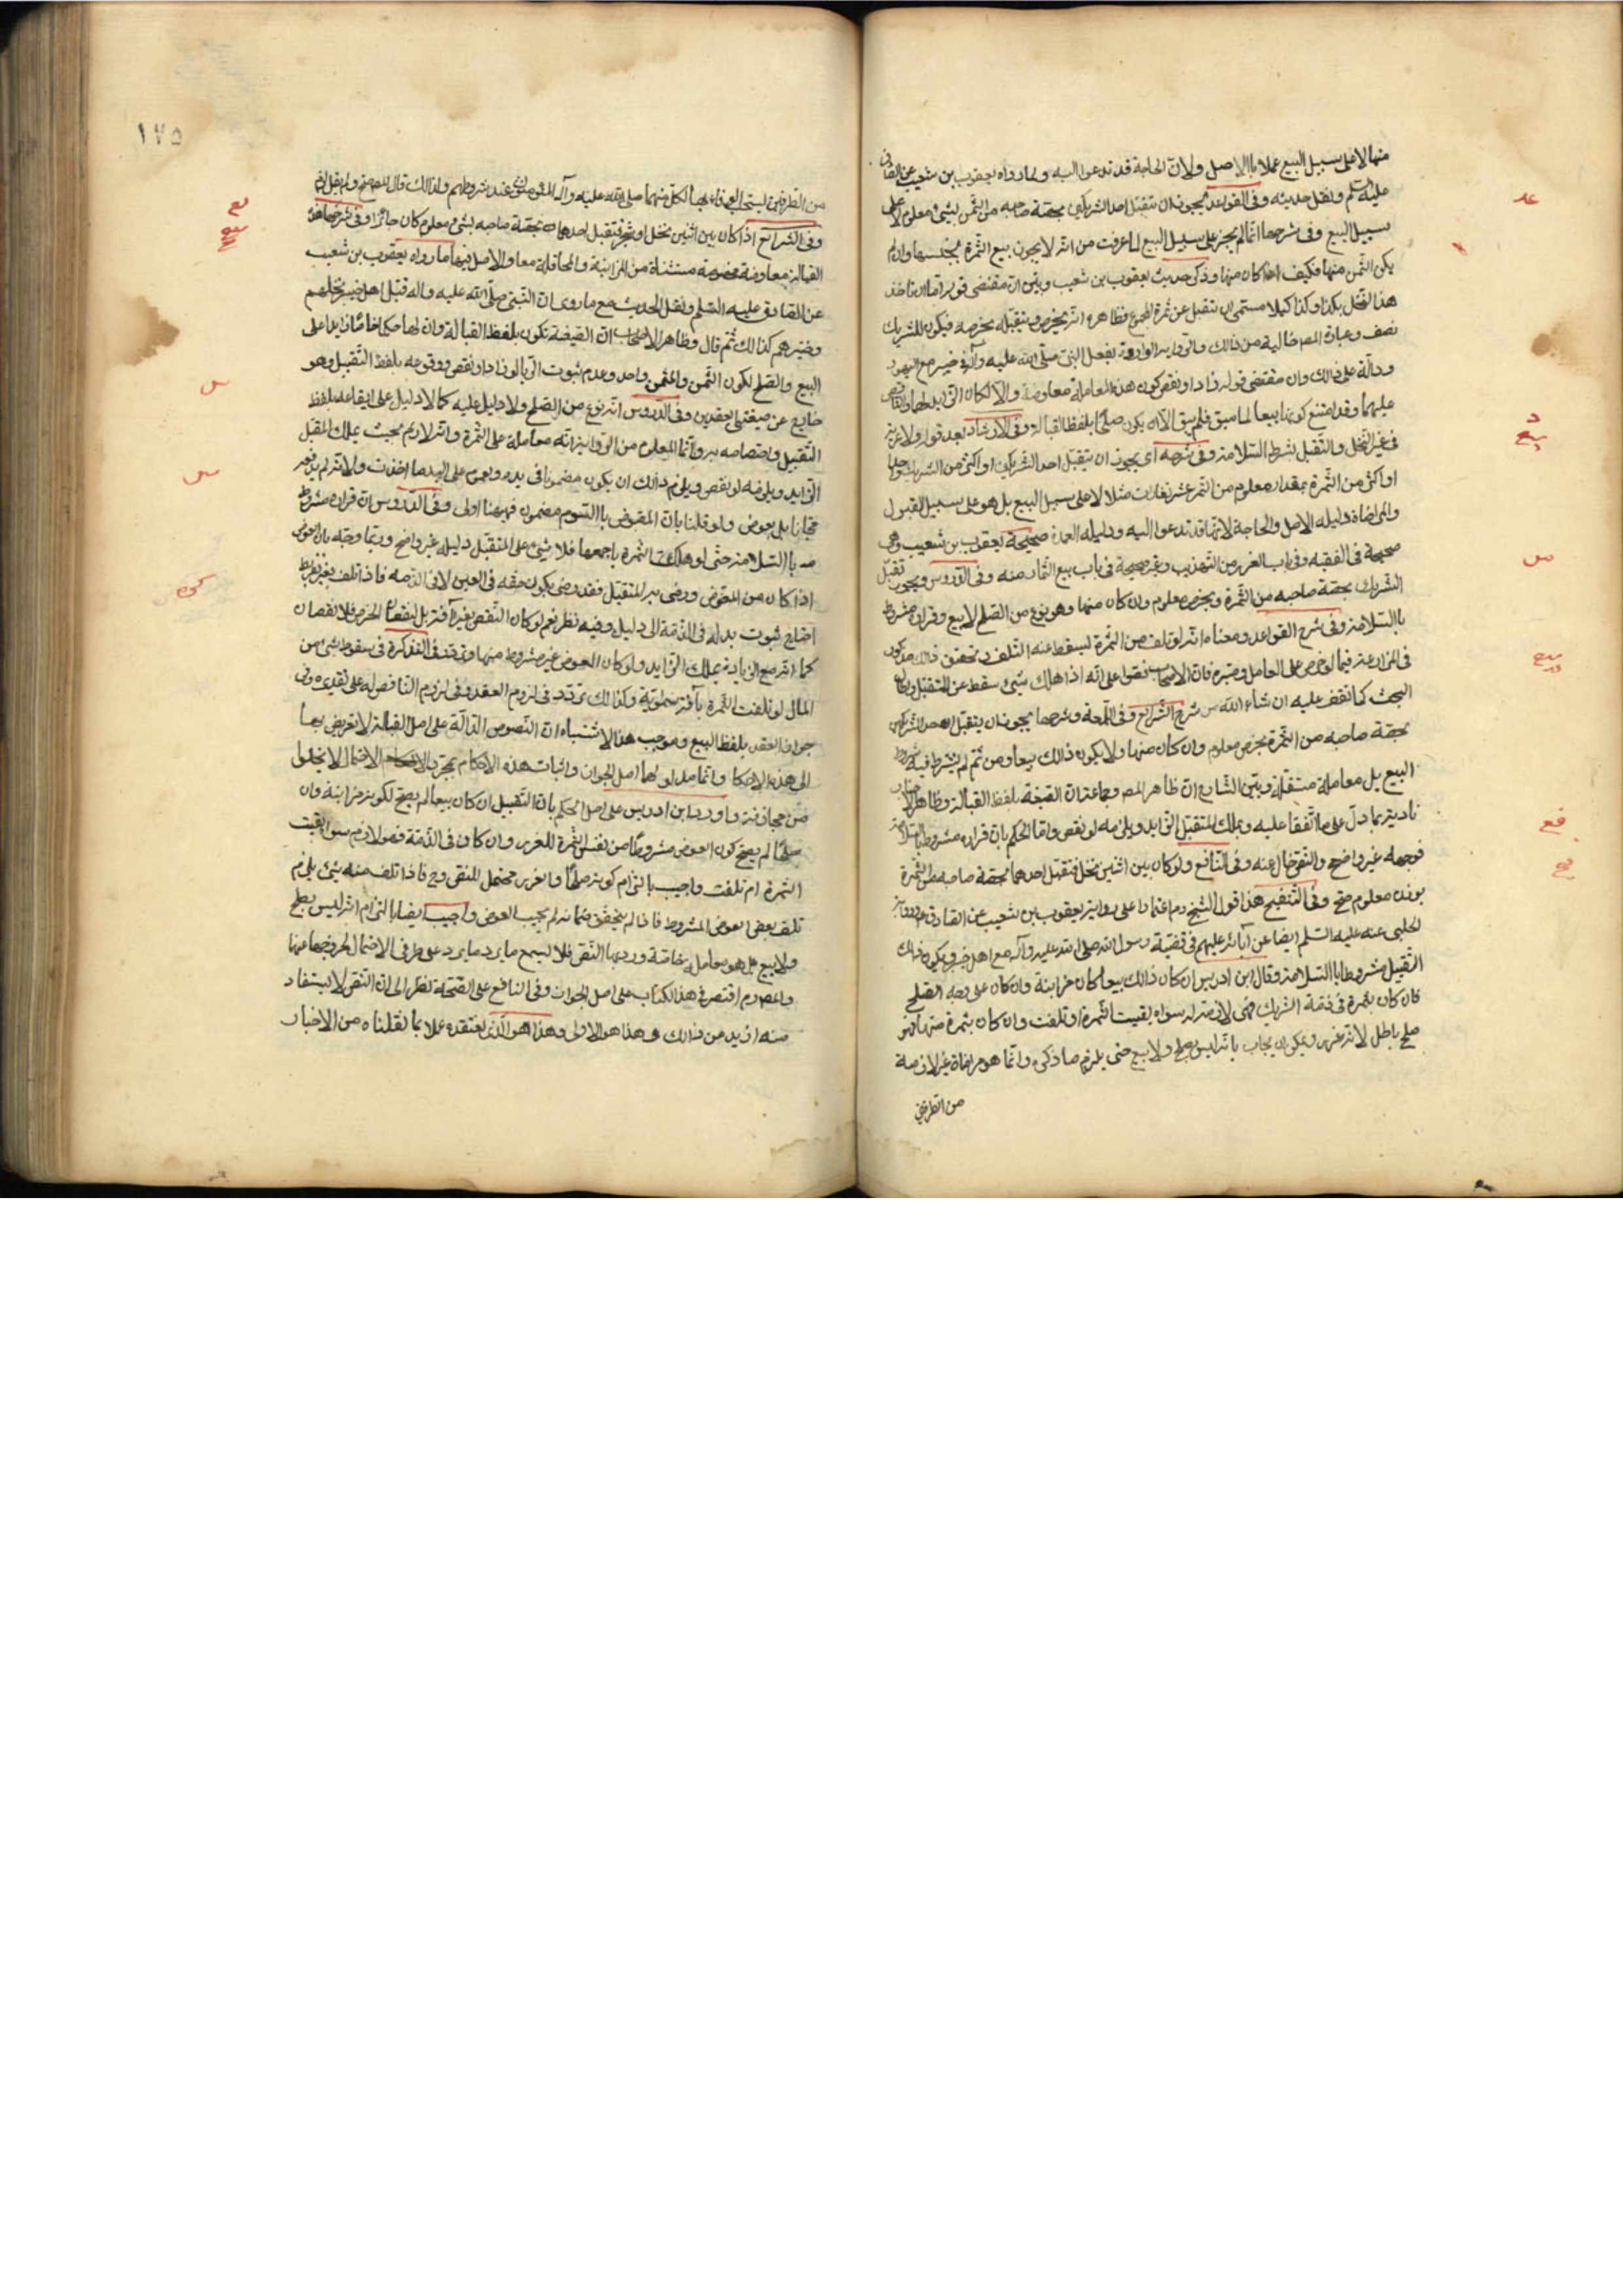 منها لا على سبيل البيع عملا بالاصل ولان الحاجة قد تدعوا اليه ولما رواه يعقوب بن شعيب عن الصادق
عليه السلم ونقل حديثه وفى القواعد يجوز ان يتقبل احد الشريكين بحصة صاحبه من الثمن بشئ معلوم لا على
سبيل البيع وفى شرحها انما لم يجز على سبيل البيع لما عرفت من انه لا يجوز بيع الثمرة بجنسها وان لم
يكن الثمن منها فكيف اذا كان منها وذكر حديث يعقوب بن شعيب وبين ان مقتضى قوله اما ان تاخذ
هذا النخل بكذا وكذا كيلا مسمى ان يتقبل عن ثمرة المجموع فظاهره انه يخرص ويتقبله بخرصه فيكون للشريك
نصف وعبارة المص خالية من ذلك والرواية الواردة بفعل النبى صلى الله عليه وآله فى خيبر مع اليهود
ودالة على ذلك وان مقتضى قوله زاد او نقص كون هذه المعاملة معاوضة والا لكان الزايد لهما والناقص
عليهما وقد امتنع كونها بيعا لما سبق فلم يبق الا ان يكون صلحا بلفظ القبالة وفى الارشاد بعد قوله ولا عرية
فى غير النخل والتقبل بشرط السلامة وفى شرحه اى يجوز ان يتقبل احد الشريكين او اكثر من الشريك
او اكثر من الثمرة بمقدار معلوم من الثمر عشر تغارات مثلا لا على سبيل البيع بل هو على سبيل القبول
والمراضاة دليله الاصل والحاجة لانها قد تدعوا اليه ودليله العمدة صحيحة يعقوب بن شعيب وهى
صحيحة فى الفقيه وفى باب الغرر من التهذيب وغير صحيحة فى باب بيع الثمار منه وفى الدروس ويجوز تقبل
الشريك بحصة صاحبه من الثمرة وبخرص معلوم وان كان منها وهو نوع من الصلح لا بيع وقراره مشروط
بالسلامة وفى شرح القواعد ومعناه انه لو تلف من الثمرة ليسقط عنه التلف وتحقق ذلك مذكور
فى المزارعة فيما لو خرص على العامل وخيره فان الاصحاب نصوا على انه اذا هلك شئ سقط عن المتقبل
البحث كما نقف عليه ان شاء الله من شرح الشرايع وفى اللمعة وشرحها يجوز ان يتقبل احد الشريكين
بحصة صاحبه من الثمرة بخرص معلوم وان كان منها ولا يكون ذلك بيعا ومن ثم لم يشترط فيه شروط
البيع بل معاملة مستقلة وبين الشارع ان ظاهر المص وجماعة ان الصيغة بلفظ القبالة وظاهر الاخبار
تاديته بما دل على ما اتفقا عليه ويملك المتقبل الزايد ويلزمه لو نقص واما الحكم بان قراره مشروط بالسلامة
فوجهه غير واضح والنص خال عنه وفى النافع ولو كان بين اثنين نخل فتقبل احدهما بحصة صاحبه من الثمرة
بوزن معلوم صح وفى التنقيح هذا قول الشيخ رحم اعتمادا على رواية يعقوب بن شعيب عن الصادق
الحلبى عنه عليه السلم ايضا عن آبائه عليهم فى قضية رسول الله صلى الله عليه وآله مع اهل خيبر ويكون ذلك
التقبيل مشروطا بالسلامة وقال ابن ادريس ان كان ذلك بيعا كان مزابنة وان كان على وجه الصلح
فان كان بثمرة فى ذمة الشريك فهى لازمة له سواء بقيت الثمرة او تلفت وان كان بثمرة منها فهو
صلح باطل لانه غرر ويمكن ان يجاب بانه ليس بصلح ولا بيع حتى يلزم ما ذكره وانما هو مراضاة غير لازمة
من الطرفين
١٧٥
من الطرفين يستحب الوفاء بها لكل منهما صلى الله عليه وآله المؤمنون عند شروطهم ولذلك قال المص صح ولم يقل لزم
وفى الشرايع اذا كان بين اثنين نخل او شجر فتقبل احدهما بحصة صاحبه بشئ معلوم كان جائزا وفى شرحها هذه
القبالة معاوضة مخصوصة مستثناة من المزابنة والمحاقلة معا والاصل فيها ما رواه يعقوب بن شعيب
عن الصادق عليه السلم ونقل الحديث مع ما روى ان النبى صلى الله عليه واله قبل اهل خيبر نخلهم
وخيرهم كذلك ثم قال وظاهر الاصحاب ان الصيغة تكون بلفظ القبالة وان لها حكما خاصا زايدا على
البيع والصلح لكون الثمن والمثمن واحد وعدم ثبوت الربا لو زاد او نقص ووقوعه بلفظ التقبيل وهو
خارج عن صيغتى العقدين وفى الدروس انه نوع من الصلح ولا دليل عليه كما لا دليل على ايقاعه بلفظ
التقبيل واختصاصه به وانما المعلوم من الرواية انه معاملة على الثمرة وانه لازم بحيث يملك المتقبل
الزايد ويلزمه لو نقص ويلزم ذلك ان يكون مضمونا فى يده وعموم على اليد ما اخذت ولانه لم يدفع
مجانا بل بعوض ولو قلنا بان المقبوض بالسوم مضمون فهيهنا اولى وفى الدروس ان قراره مشروط
بالسلامة حتى لو هلكت الثمرة باجمعها فلا شئ على المتقبل دليله غير واضح وربما وجه بان العوض
اذا كان من المعوض ورضى به المتقبل فقد رضى بكون حقه فى العين لا فى الذمة فاذا تلف بغير تفريط
احتاج ثبوت بدله فى الذمة الى دليل وفيه نظر نعم لو كان النقص بغير آفة بل لنقصان الخرص فلا نقصان
كما انه مع الزيادة يملك الزايد ولو كان العوض غير مشروط منها وتوقف فى التذكرة فى سقوط شئ من
المال لو تلفت الثمرة بآفة سماوية وكذلك تردد فى لزوم العقد وفى لزوم الناقص له على تقديره وفى
جواز العقد بلفظ البيع وموجب هذا الاشتباه ان النصوص الدالة على اصل القبالة لا تعرض لها
الى هذه الاحكام وانما مدلولها اصل الجواز واثبات هذه الاحكام بمجرد الاحتمال لا يخلوا
من مجازفة واورد ابن ادريس على اصل الحكم بان التقبيل ان كان بيعا لم يصح لكونه مزابنة وان
صلحا لم يصح كون العوض مشروطا من نفس الثمرة للغرر وان كان فى الذمة فهو لازم سواء بقيت
الثمرة ام تلفت واجيب بالتزام كونه صلحا والغرر محتمل للنص وح فاذا تلف منه شئ يلزم
تلف بعض العوض المشروط فاذا لم يتحقق ضمانه لم يجب العوض واجيب ايضا بالتزام انه ليس بصلح
ولا بيع بل هو معاملة خاصة ورد بها النص فلا يسمع ما يرد ما يرد على طرفى الاحتمال لخروجها عنها
والمص رحم اقتصر فى هذا الكتاب على اصل الجواز وفى النافع على الصحة نظرا الى ان النص لا يستفاد
منه ازيد من ذلك وهذا هو الاولى وهذا هو الذى نعتقده عملا بما نقلناه من الاخبار